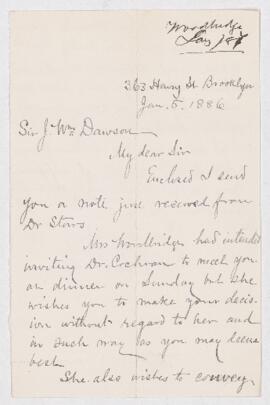 Woodbridge
Jan 5/87
363 Henry St Brooklyn
Jan. 5. 1886
Sir J. Wm Dawson
My dear Sir
Enclosed I send
you a note just received from
Dr Storrs
Mrs Woodbridge had intended
inviting Dr. Cochran to meet you
on dinner on Sunday but she
wishes you to make your decis-
ion without regard to her and
in such way as you may deem
best.
She also wishes to convey